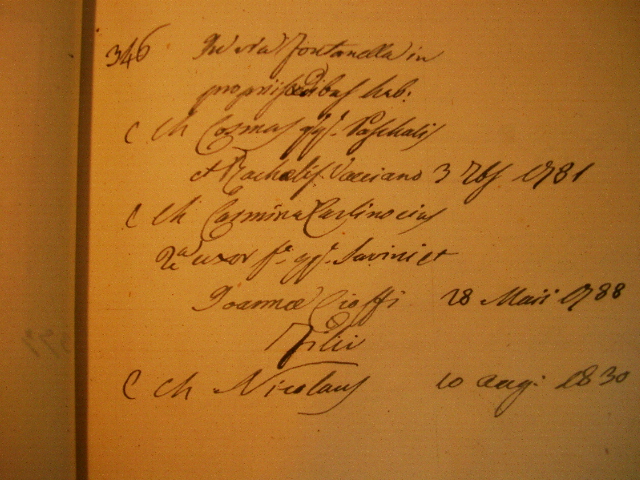 346 In via Fontanella in
propriis ædibus hab:
C Ch Cozmas qq.m Paschalis
et Rachelis Vacciano 3 7bs 1781
C Ch Carmina Carlino eius
2a uxor f.a qq.m Savini et
Joannæ Cioffi 28 Maii 1788
Filii
C Ch Nicolaus 10 aug: 1830